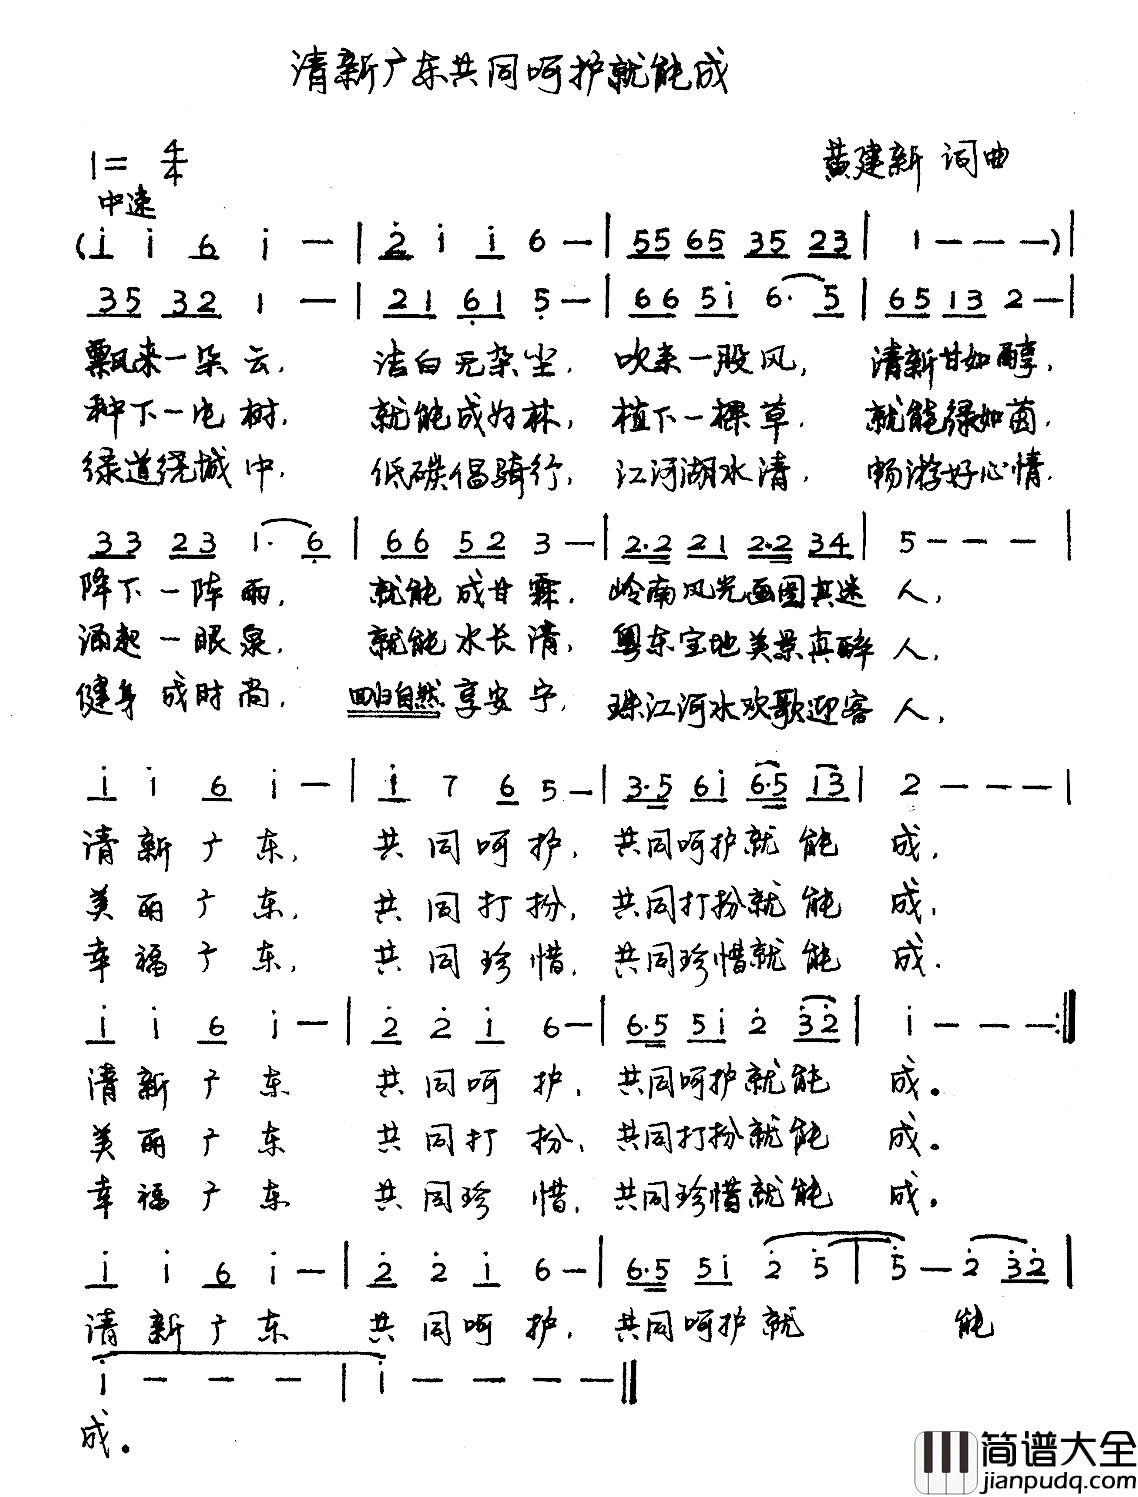 清新广东共同呵护就能成
1= 4/4
黄建新 词曲
中速
(i i 6 i — | 2 i i 6 — | 55 65 35 23 | 1 — — —)|
35 32 1 — | 21 61 5 — | 66 5i 6· 5 | 65 13 2 — |
飘来一朵云, 洁白无杂尘. 吹来一股风, 清新甘如醇,
种下一片树, 就能成好林, 植下一棵草, 就能绿如茵,
绿道绕城中, 低碳倡骑行, 江河湖水清, 畅游好心情.
33 23 1· 6 | 66 52 3 — | 2·2 21 2·2 34 | 5 — — — |
降下一阵雨, 就能成甘霖, 岭南风光画图真迷人,
涌起一眼泉, 就能水长清, 粤东宝地美景真醉人,
健身成时尚, 回归自然享安宁, 珠江河水欢歌迎客人,
i i 6 i — | i 7 6 5 — | 3·5 6i 6·5 13 | 2 — — — |
清新广东, 共同呵护, 共同呵护就能成,
美丽广东, 共同打扮, 共同打扮就能成,
幸福广东, 共同珍惜, 共同珍惜就能成.
i i 6 i — | 2 2 i 6 — | 6·5 5i 2 32 | i — — — :||
清新广东 共同呵护, 共同呵护就能成。
美丽广东 共同打扮, 共同打扮就能成。
幸福广东 共同珍惜, 共同珍惜就能成。
i i 6 i — | 2 2 i 6 — | 6·5 5i 2 5 | 5 — 2 32 |
清新广东 共同呵护, 共同呵护就 能
i — — — | i — — — ||
成。
简谱大全
jianpudq.com